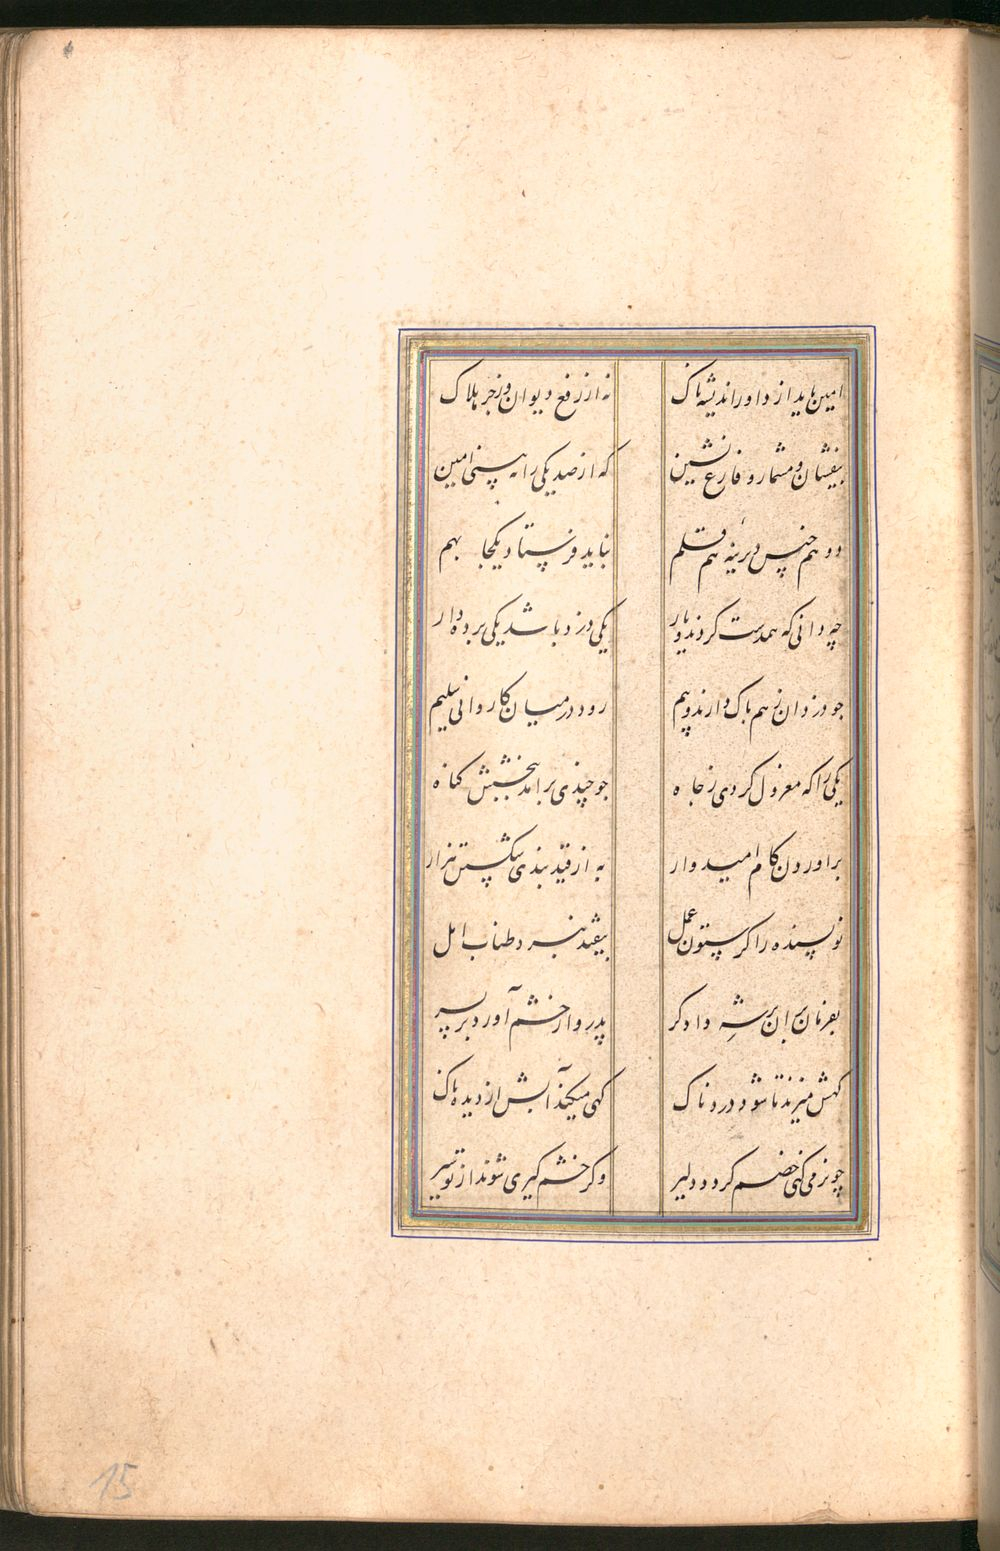 امین باید از داور اندیشه ناک نه از رفع دیوان و زجر هلاک
بیفشان و مشمار و فارغ نشین که از صد یکی را نه بینی امین
دو هم جنس دیرینه هم قلم نباید فرستاد یکجا بهم
چه دانی که همدست کردند و یار یکی دزد باشد یکی برده دار
جو دزدان ز هم باک دارند و بیم رود در میان کاروانی سلیم
یکی را که معزول کردی ز جاه جو چندی برامد ببخشش کناه
براوردن کام امیدوار به از قید بندی شکستن هزار
نویسنده را کر ستون عمل بیفتد نبرد طناب امل
بفرمان بران بر شه دادکر پدروار خشم آورد بر پسر
کهش میزند تا شود دردناک کهی میکند آبش از دیده پاک
چو نرمی کنی خصم کردد دلیر وکر خشم کیری شوند از تو سیر
15